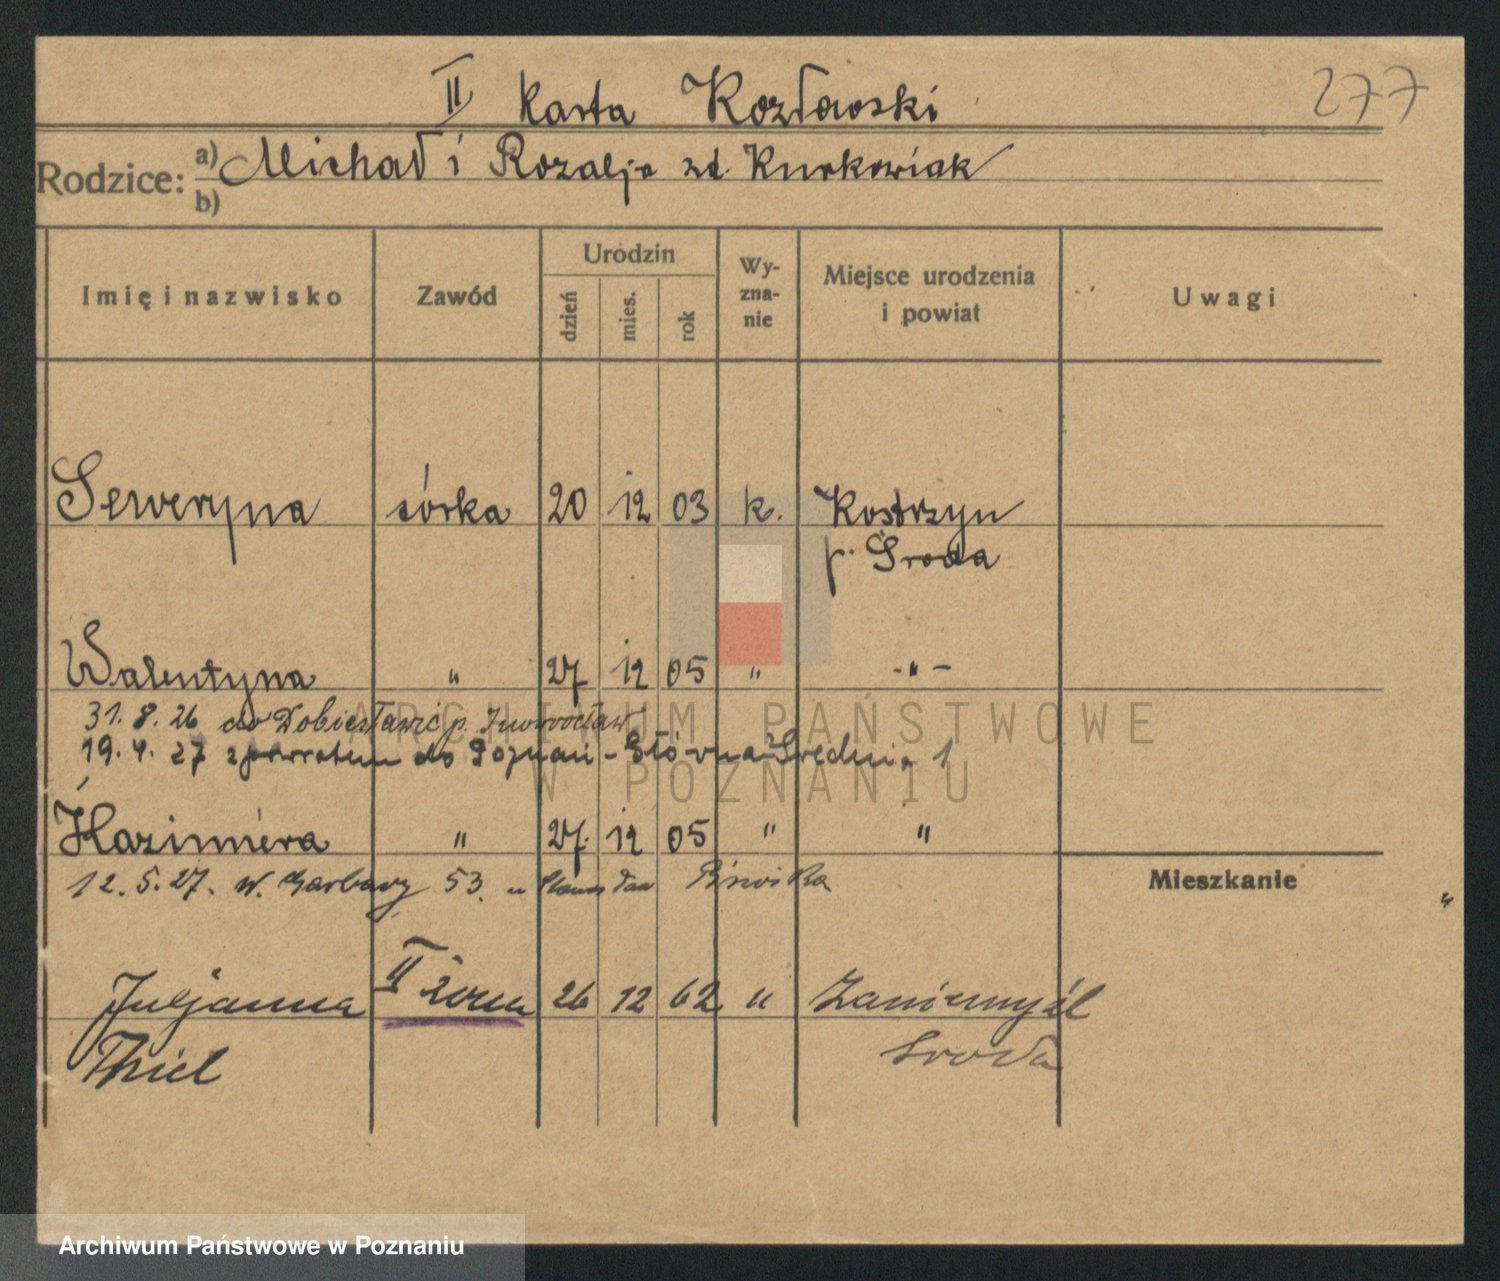 277
II Karta Kozłowski
Rodzice: a) Michał i Rozalja zd. Kurkowiak
b)
Imię i nazwisko Zawód Urodzin dzień mies. rok Wy-zna-nie Miejsce urodzenia i powiat Uwagi
Seweryna córka 20 12 03 k. Kostrzyn
p. Środa
Walentyna " 27 12 05 " -"-
31. 8. 26 do Dobiesławic p. Inowrocław
19. 4. 27 z powrotem do Poznań - Główna Średnia 1
Kazimiera " 27. 12 05 " "
12. 5. 27. W. Garbary 53. u
Mieszkanie
"
Juljanna II żona 26 12 62 " Zaniemyśl
Thiel Środa
ARCHIWUM PAŃSTWOWE
W POZNANIU
Archiwum Państwowe w Poznaniu